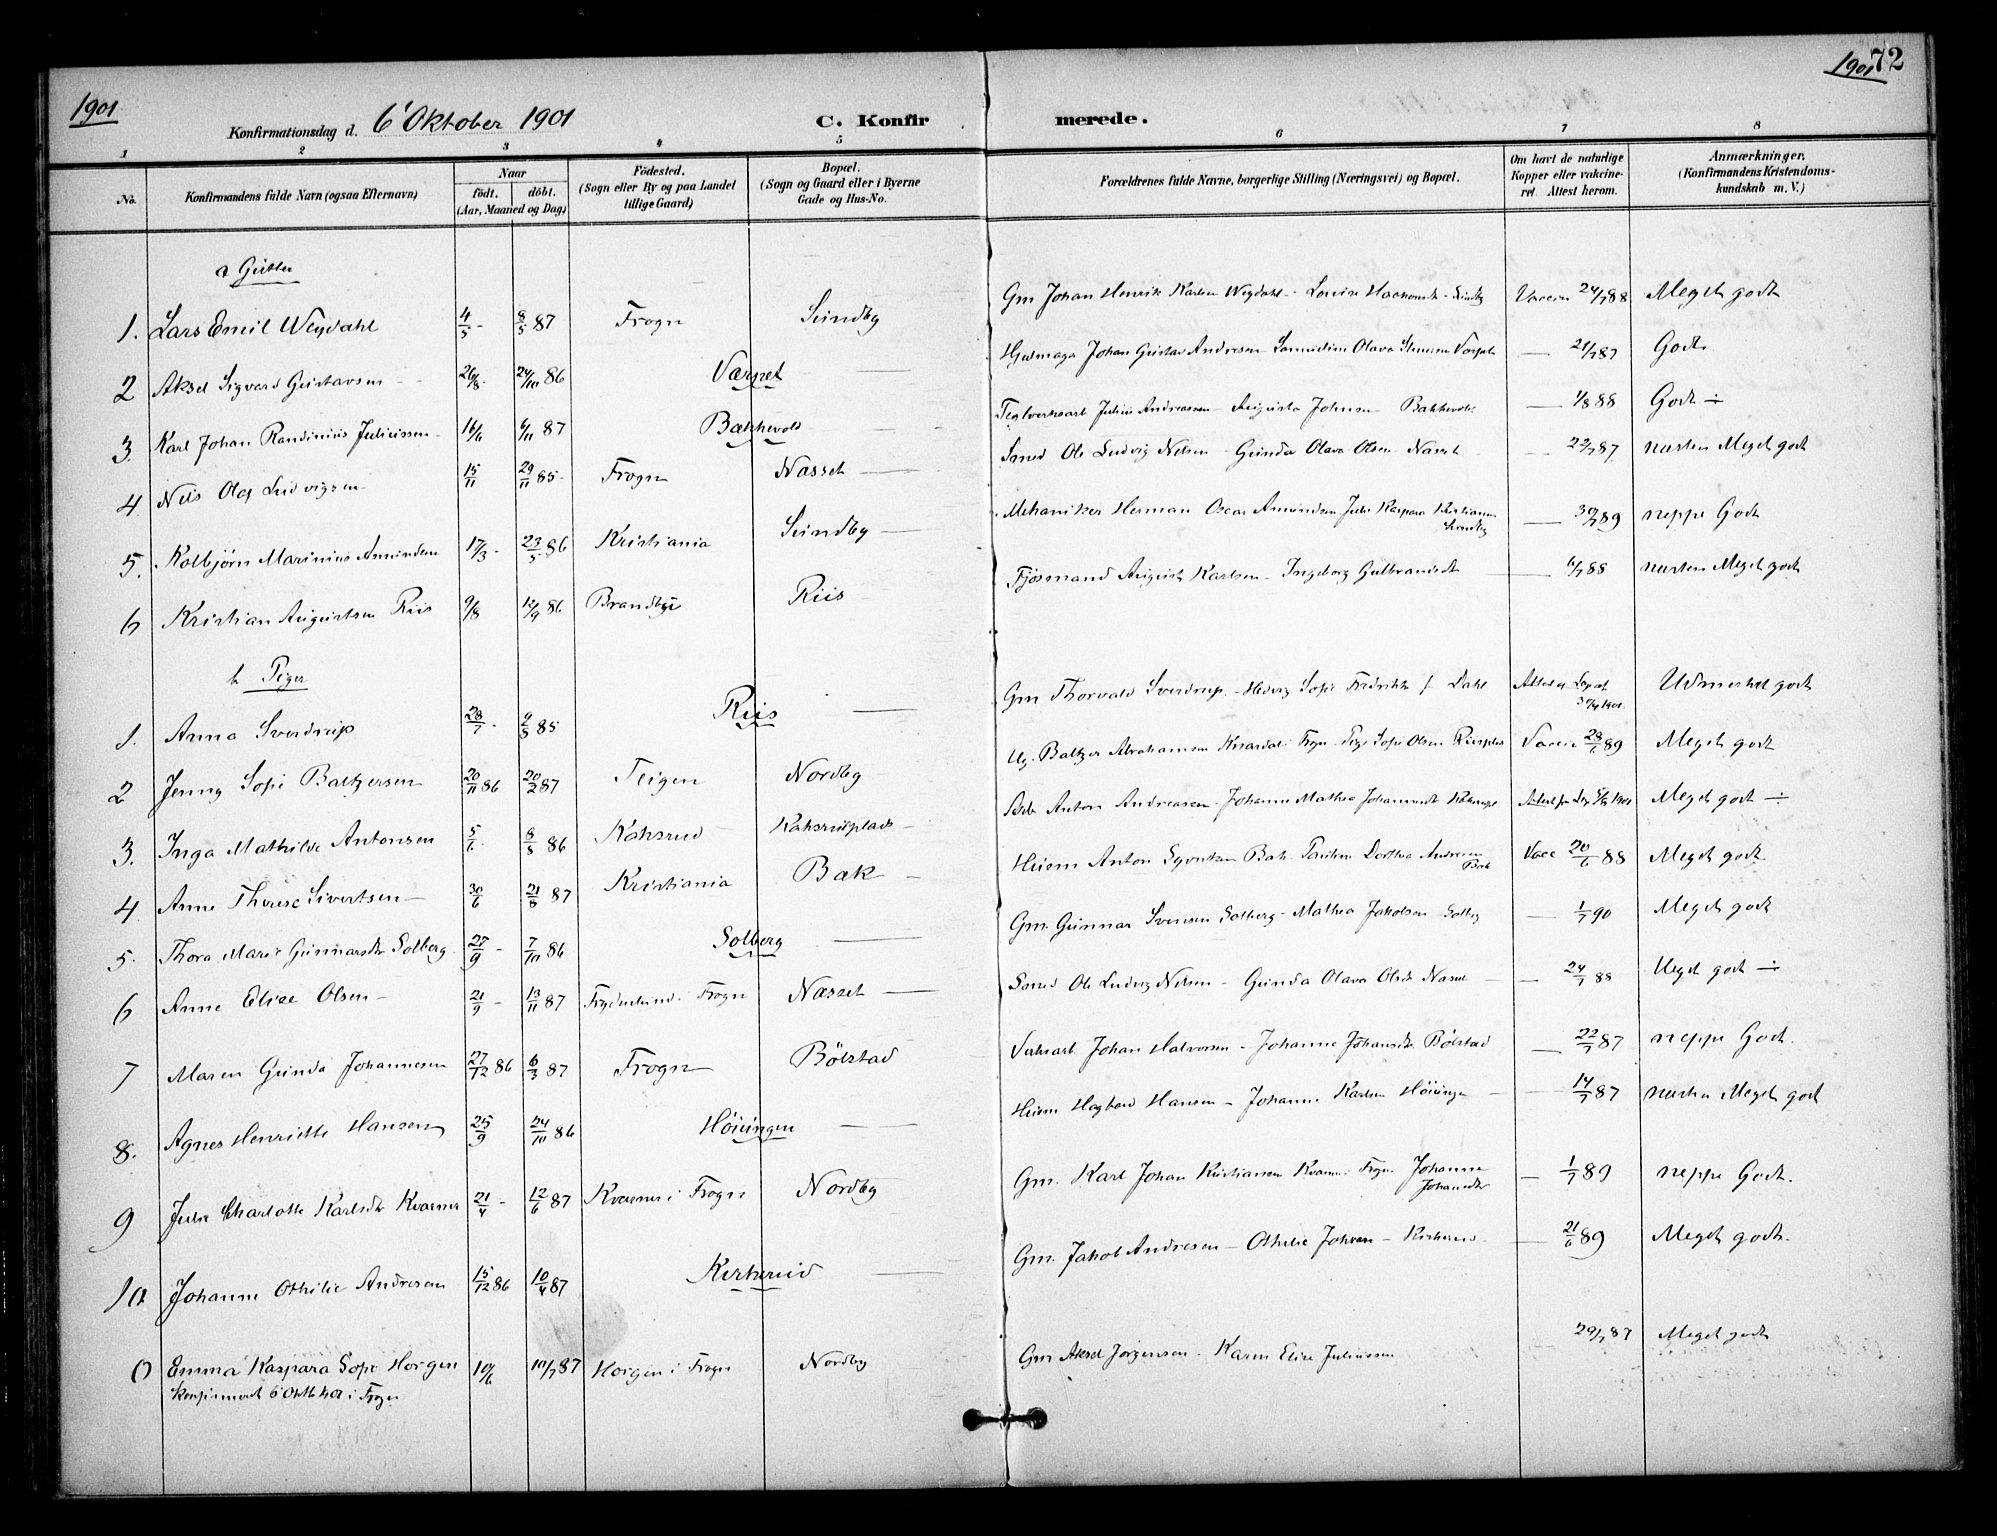 1901
1901 72
Konfirmationsdag d. 6' Oktober 1901
C. Konfirmerede.
1 2 3 4 5 6 7 8
No.
Konfirmandens fulde Navn (ogsaa Efternavn)
Naar
födt. döbt.
(Aar, Maaned og Dag)
Födested.
(Sogn eller By og paa Landet
tillige Gaard)
Bopæl.
(Sogn og Gaard eller i Byerne
Gade og Hus-No.
Forældrenes fulde Navne, borgerlige Stilling (Næringsvei) og Bopæl.
Om havt de naturlige
Kopper eller vakcine-
ret. Attest herom.
Anmærkninger.
(Konfirmandens Kristendoms-
kundskab m. V.)
a Gutter
1. Lars Emil Weydahl 4/5 - 8/5 87 Frogn Sundby Gm Johan Henrik Karlsen Weydahl - Lovise Vaccin 24/7 88 Meget godt
2 Aksel Sigvard Gustavsen 26/8 - 24/10 86 Værpet — Johan Gustav Andresen Olava — 21/7 87 Godt
3. Karl Johan Randinius Juliussen 16/6 6/11 87 Bakkevold Teglverksarb Julius Andreassen - Augusta Johnsen Bakkevold — 1/8 88 Godt ÷
4 Nils Olaf Ludvigsen 15/11 29/11 85 Frogn Næsset — Smed Ole Ludvig Nilsen - Gunda Olava Olsen Næsset — 22/7 87 næsten Meget godt
5. Kolbjörn Marinius Amundsen 17/3 - 23/5 86 Kristiania Sundby — Mekaniker Herman Oscar Amundsen Julie Kaspara Kristiansen Sundby — 30/7 89 neppe Godt
6 Kristian Augustsen Riis 9/8 12/9 86 Brandbu Riis Fjösmand August Karlsen - Ingeborg Gulbrandsdt — 6/7 88 næsten Meget godt
b Piger
1. Anna Sverdrup 28/7 - 9/5 85 Riis — Gm Thorvald Sverdrup - Hedvig Sofie Fredrikke f Dahl Udmerket godt
2 Jenny Sofie Baltzersen 20/11 86 20/2 87 Teigen Nordby Ug. Baltzer Abrahamsen Frogn - Pige Sofie Olsen Vaccin 28/7 89 Meget godt
3. Inga Mathilde Antonsen 5/6 - 8/8 86 Kaksrud Kaksrudplads — Anton Andreassen - Johanne Mathea Johannesdt Meget godt ÷
4 Anne Therese Sivertsen — 30/6 21/8 87 Kristiania Bæk — Anton Bæk. Dorthea Andresen Bæk Vacc 20/6 88 Meget godt
5. Thora Marie Gunnarsdtr Solberg 25/9 - 7/10 86 Solberg — Gm. Gunnar Svensen Solberg - Mathea Jakobsen Solberg — 1/7 90 Meget godt
6 Anne Elise Olsen - 21/9 - 13/11 87 Frydenlund i Frogn Næsset — Smed Ole Ludvig Nilsen - Gunda Olava Olsdt Næsset — 24/7 88 Meget godt ÷
7 Maren Gunda Johannesen 27/12 86 6/3 87 Frogn Bölstad Verksarb Johan Halvorsen - Johanne Johansdt. Bölstad — 22/7 87 neppe Godt.
8. Agnes Henriette Hansen 25/9 24/10 86 Höiungen — Hagbard Hansen - Johanne Karlsen Höiungen — 14/7 87 næsten Meget godt
9 Julie Charlotte Karlsdtr Kværner 21/4 - 12/6 87 Kværner i Frogn Nordby Gm. Karl Johan Kristiansen Kværner i Frogn. Johanne Johansdtr — 1/7 89 neppe Godt.
10 Johanne Othilie Andresen 15/12 86 10/4 87 Kirkerud — Gm. Jakob Andresen - Othilie Johnsen - Kirkerud — 21/6 89 Meget godt.
0 Emma Kaspara Sofie Horgen 10/6 10/7 87 Horgen i Frogn Nordby Gm Aksel Jörgensen - Karen Elise Juliussen 29/7 87 Meget godt
Konfirmeret 6 Oktb 1901 i Frogn